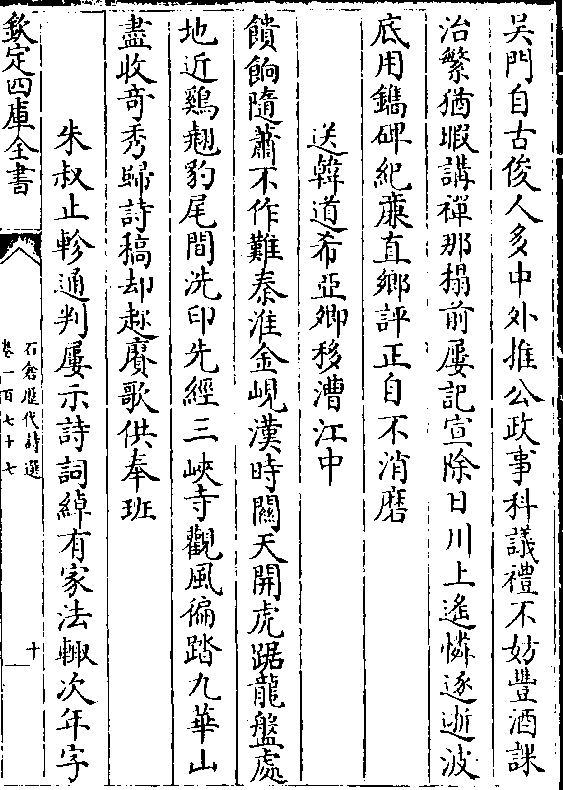 吴門自古俊人多中外推公政事科議禮不妨豐酒課
治繁猶暇講禪那搨前屢記宣除日川上遙憐逐逝波
底用鐫碑紀康直鄉評正自不消磨
送韓道希亞卿移漕江中
饋餉隨蕭不作難秦淮金峴漢時關天開虎踞龍盤處
地近鷄翹豹尾間洗印先經三峽寺觀風徧踏九華山
盡收竒秀歸詩稿却趂賡歌供奉班
朱叔止軫通判屢示詩詞綽有家法輙次年字
欽定四庫全書
石倉歷代詩選
卷一百七十七
十